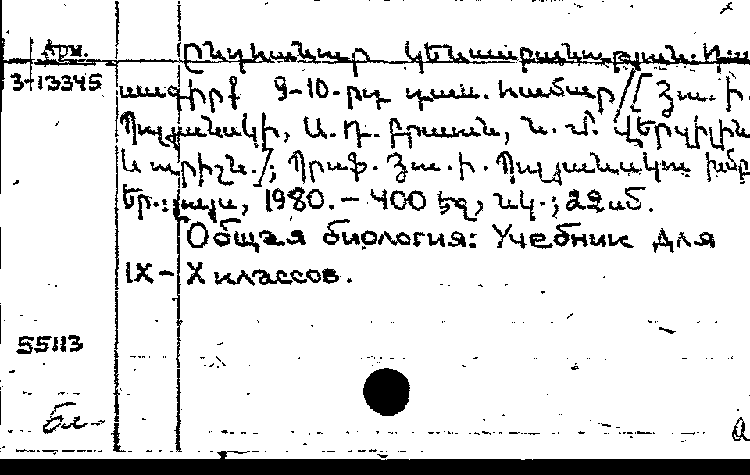 Арм.
3-13345
Ընդհանուր կենսաբանություն: Դա-
սագիրք 9-10-րդ դաս. համար // [Յու. Ի.
Պոլյանսկի, Ա. Դ. Բրաուն, Ն. Մ. Վերզիլին
և ուրիշն.]; Պրոֆ. Յու. Ի. Պոլյանսկու խմբ
Եր.: Լույս, 1980. — 400 էջ, նկ.; 22 սմ.
Общая биология: Учебник для
IX – X классов.
55113